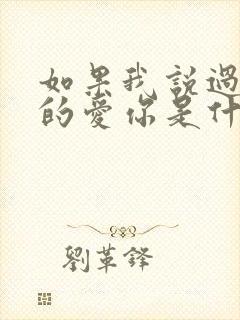 如果我説過
的愛你是什
劉革鋒